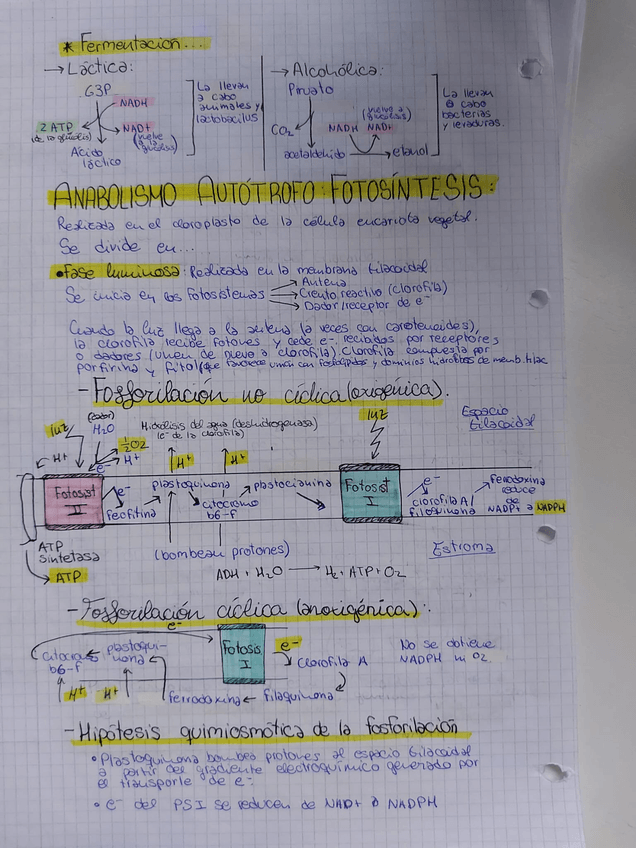 * Fermentación...
→ Láctica:
G3P
NADH
2 ATP
(de la glucólisis)
NAD+
(vuelve a la glucólisis)
Ácido láctico
La llevan a cabo animales y lactobacilus
→ Alcohólica:
Piruvato
CO2
NADH NAD+
(vuelve a glucólisis)
acetaldehido → etanol
La llevan a cabo bacterias y levaduras.
ANABOLISMO AUTÓTROFO: FOTOSÍNTESIS:
Realizada en el cloroplasto de la célula eucariota vegetal.
Se divide en...
• Fase luminosa: Realizada en la membrana tilacoidal
Se inicia en los Fotosistemas
→ Antena
→ Centro reactivo (clorofila)
→ Dador/receptor de e-
Cuando la luz llega a la antena (a veces con carotenoides),
la clorofila recibe fotones y cede e- recibidos por receptores
o dadores (vienen de nuevo a clorofila). Clorofila compuesta por
porfirina y fitol (que favorece unión con fosfolípidos y dominios hidrófobos de memb. tilac
- Fosforilación no cíclica (oxigénica).
luz
H2O
Hidrólisis del agua (deshidrogenasa)
(e- de la clorofila)
luz
Espacio tilacoidal
H+
½O2
H+
e-
H+
H+
Fotosist II
e-
feofitina
plastoquinona
citocromo b6-f
plastocianina
Fotosist I
e-
clorofila A/ filoquinona
ferrodoxina reduce de NADP+ a NADPH
ATP sintetasa
→ ATP
(bombean protones)
Estroma
ADH + H2O → H2 + ATP + O2
- Fosforilación cíclica (anoxigénica):
e-
citocromo b6-f
plastoquinona
Fotosis I
e-
Clorofila A
No se obtiene NADPH ni O2
H+ H+
ferrodoxina ← filaquinona
- Hipótesis quimiosmótica de la fosforilación
• Plastoquinona bombea protones al espacio tilacoidal
a partir del gradiente electroquímico generado por
el transporte de e-
• e- del PSI se reducen de NAD+ a NADPH